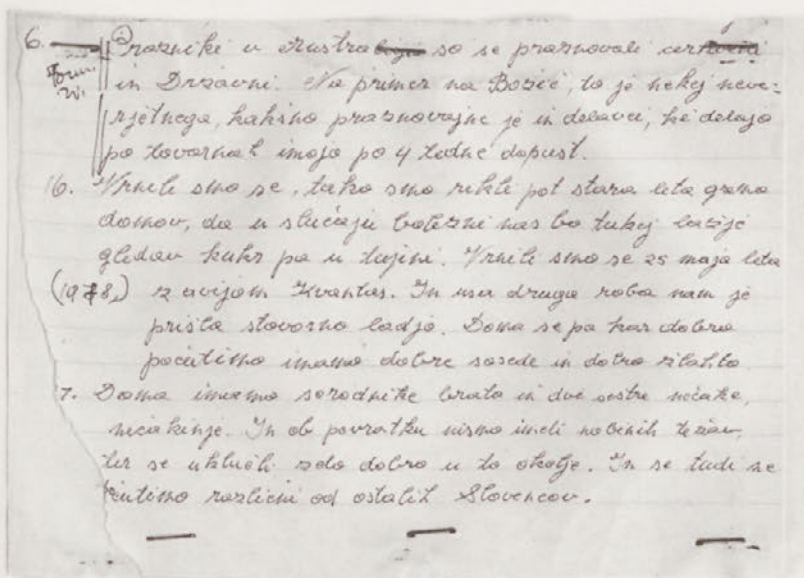 6. Prazniki v Austra so se praznovali cerkveni
in Drzavni. Na primer na Bozić, to je nekej neve=
rjetnega, kakšno praznovajne je in delavci, ke delajo
po tovarnah imajo po 4 tedne dopust.
16. Vrnili smo se, tako smo rekli pot stara leta gremo
domov, da u slučaju bolezni nas bo tukej lažje
gledav kukr pa u tujini. Vrnili smo se 25 maja leta
(1978) z avijom Kvantas. In usa druga roba nam je
prišla stovorno ladjo. Doma se pa kar dobro
počutimo imamo dobre sosede in dobro žlahto
7. Doma imamo sorodnike brata in dvé sestre nečake,
nečakinje. In ob povratku nismo imeli nobenih težav,
ter se uključli zelo dobro u to okolje. In se tudi ne
čutimo različni od ostalih Slovencov.